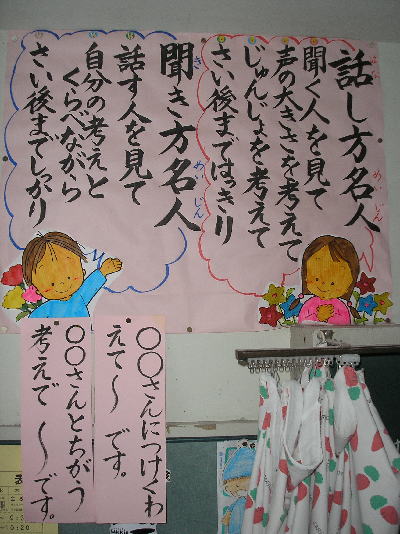 話し方名人
聞く人を見て
声の大きさを考えて
じゅんじょを考えて
さい後まではっきり
聞き方名人
話す人を見て
自分の考えと
くらべながら
さい後までしっかり
〇〇さんにつけくわ
えて〜です。
〇〇さんとちがう
考えで〜です。